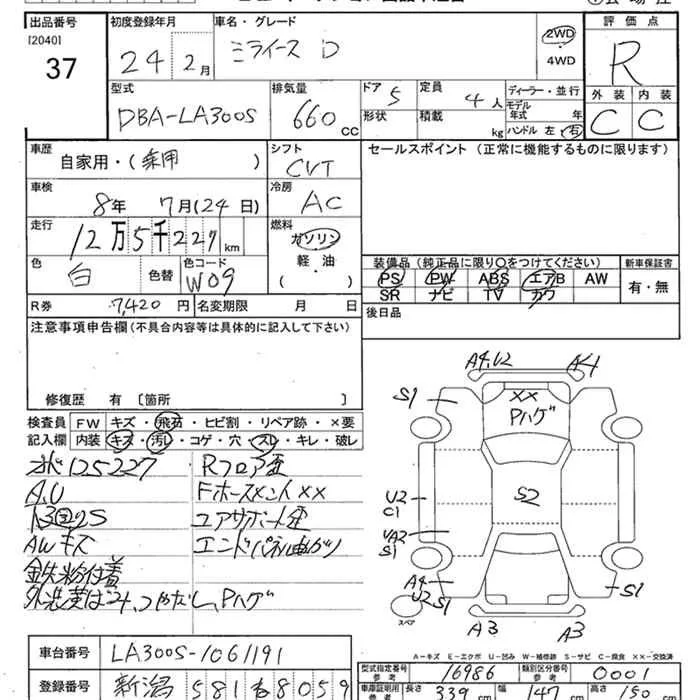 出品番号 初度登録年月 車名・グレード 評価点
[2040]
37 24 2月 ミライース D 2WD R
4WD
型式 排気量 ドア 定員 ディーラー・並行 外装 内装
DBA-LA300S 660cc 5 4人 モデル年式 年 C C
形状 積載 kg ハンドル 左・右
車歴 シフト セールスポイント (正常に機能するものに限ります)
自家用・(乗用) CVT
車検 冷房
8年 7月(24日) AC
走行 燃料
12万5千227km ガソリン
軽・油
( )
色 色替 色コード 装備品(純正品に限り○をつけてください) 新車保証書
白 W09 PS PW ABS エアB AW 有・無
SR ナビ TV カワ
R券 7,420円 名変期限 月 日 後日品
注意事項申告欄(不具合内容等は具体的に記入して下さい)
修復歴 有 [箇所 ]
検査員 FW キズ・飛石・ヒビ割・リペア跡・×要
記入欄 内装 キズ・汚レ・コゲ・穴・スレ・キレ・破レ
125227 Rフロア歪
A.U Fホースメント××
AWキズ エンドパネル曲がり
鉄粉付着
Pハゲ
A4,U2 A4
S1 ×× S1
Pハゲ
U2 S2
C1
UA2
S1
A4
U2 S1 S1
スペア
A3 A3
A-キズ E-エクボ U-凹み W-補修跡 S-サビ C-腐食 XX-交換済
車台番号 LA300S-1061191
型式指定番号 参考 16986 類別区分番号 参考 0001
登録番号 新潟 581 8059
車庫証明用 参考 長さ 339cm 幅 147cm 高さ 150cm